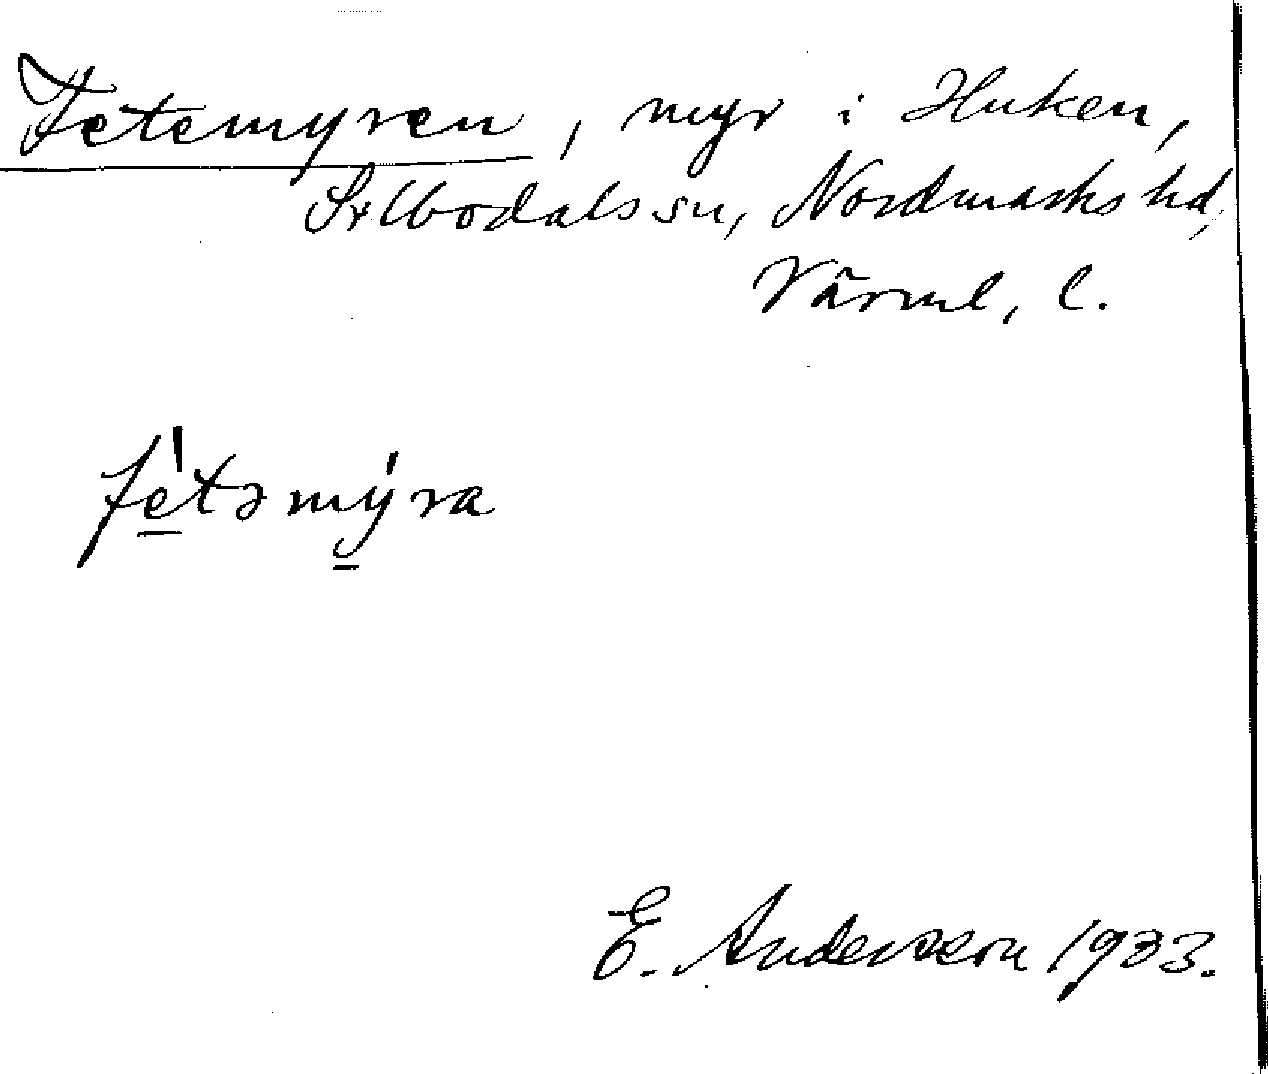 Fetemyren, myr i Huken,
Silbodals sn, Nordmarks hd,
Värml. l.
fetəmyra
E. Andersson 1933.